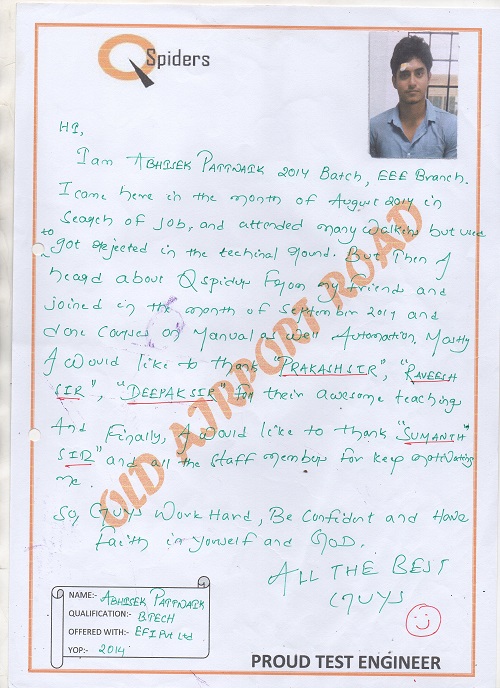 QSpiders
HI,
I am ABHISEK PATTNAIK 2014 Batch, EEE Branch.
I came here in the month of August 2014 in
Search of Job, and attended many walkins but used
to got rejected in the techinal round. But Then I
heard about Qspiders From my friends and
joined in the month of September 2014 and
done Courses on Manual as well Automation. Mostly
I would like to thank "PRAKASH SIR", "RAVEESH
SIR", "DEEPAK SIR" for their awesome teaching
And Finally, I would like to thank "SUMANTH
SIR" and all the staff member for keep motivating
me.
So, Guys Work Hard, Be Confident and Have
Faith in yourself and GOD.
ALL THE BEST
GUYS
OLD AIRPORT ROAD
NAME:- ABHISEK PATTNAIK
QUALIFICATION:- BTECH
OFFERED WITH:- EFI Pvt Ltd
YOP:- 2014
PROUD TEST ENGINEER